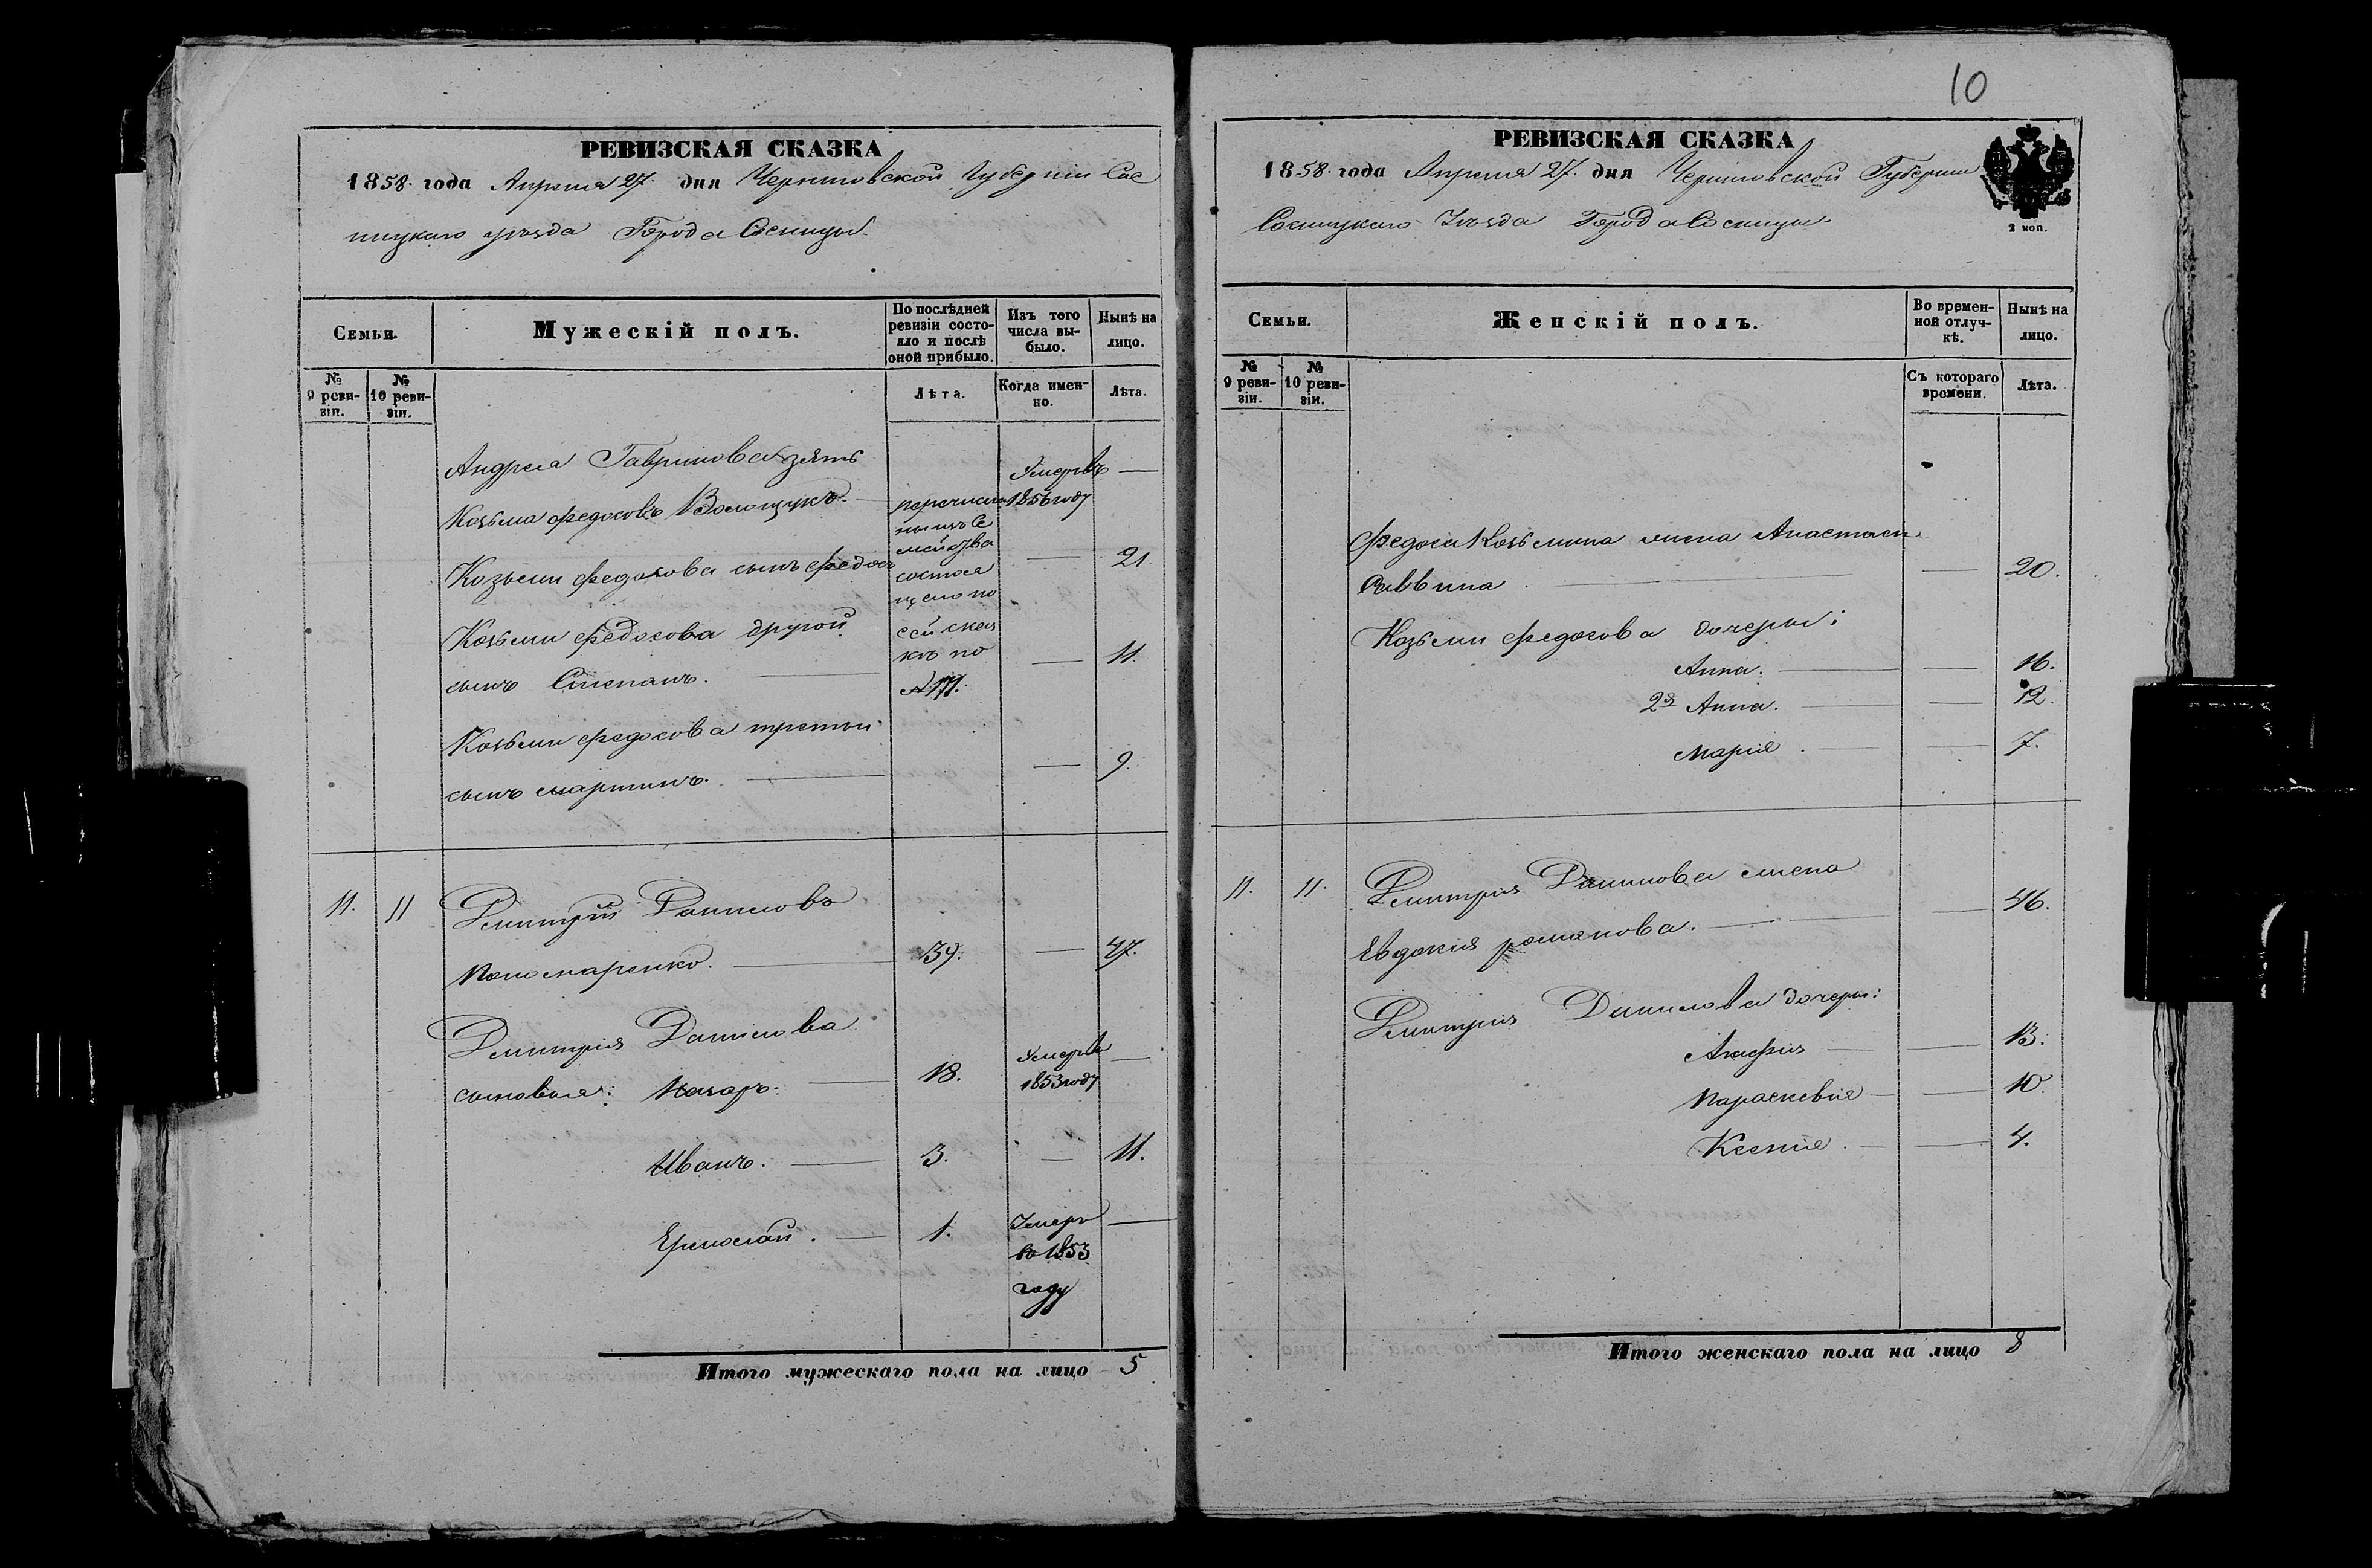 10
РЕВИЗСКАЯ СКАЗКА
1858. года Апреля 27. дня Черниговской Губернии Сос
ницкаго уѣзда Города Сосницы.
Семьи.
Мужескій полъ.
По послѣдней
ревизіи состо-
яло и послѣ
оной прибыло.
Изъ того
числа вы-
было.
Нынѣ на
лицо.
№
9 реви-
зіи.
№
10 реви-
зіи.
Лѣта.
Когда имен-
но.
Лѣта.
Андрея Гаврилова зять
Козьма Федосовъ Волощукъ.
перечислен
ный изъ се
мейства
состоя
щего по
сей сказ
кѣ по
№
Умеръ въ
1856 году
Козьмы Федосова сынъ Федос
21
Козьмы Федосова другой
сынъ Степанъ.
11.
Козьмы Федосова третий
сынъ Мартинъ.
9.
11. 11 Дмитрий Даниловъ
Пономаренко. 39. 47.
Дмитрия Данилова
сыновья: Назаръ. 18.
Умеръ въ
1853 году
Иванъ. 3. 11.
Ермолай. 1.
Умеръ
въ 1853
году
Итого мужескаго пола на лицо 5
РЕВИЗСКАЯ СКАЗКА
1858. года Апреля 27. дня Черниговской Губернии
Сосницкаго Уѣзда Города Сосницы.
2 коп.
Семьи.
Женскій полъ.
Во времен-
ной отлуч-
кѣ.
Нынѣ на
лицо.
№
9 реви-
зіи.
№
10 реви-
зіи.
Съ котораго
времени.
Лѣта.
Федоса Козьмина жена Анастасия
Саввина 20.
Козьмы Федосова дочеры:
Анна. 16.
2я Анна. 12.
Мария. 7.
11. 11. Дмитрия Данилова жена
Евдокия Романова. 46.
Дмитрия Данилова дочеры:
Агафия 13.
Параскевия 10.
Ксения. 4.
Итого женскаго пола на лицо 8